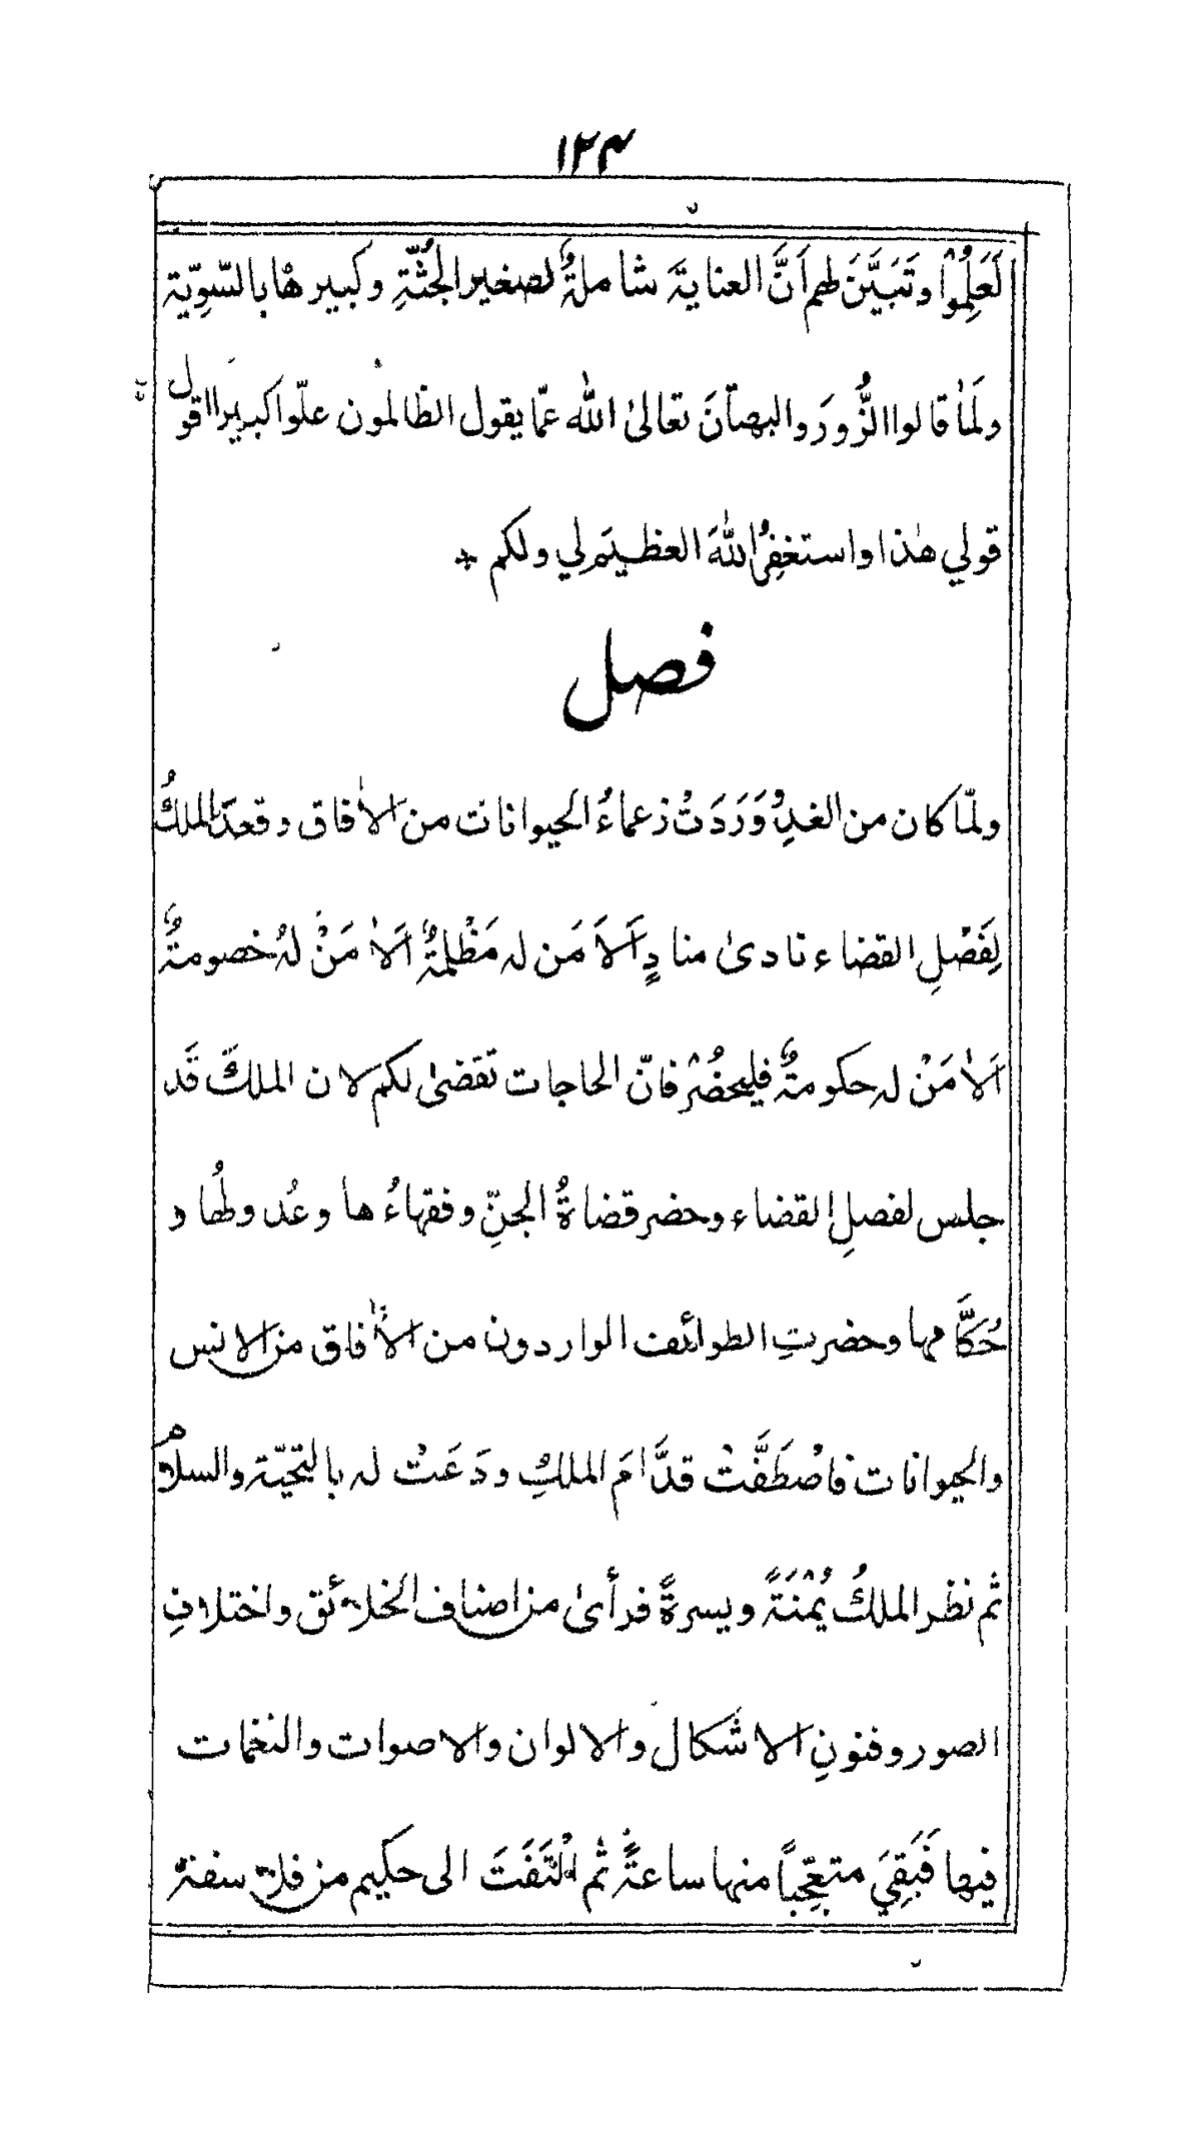 ۱۲۴
لَعَلِمُوْا وتَبَيَّنَ لهم اَنَّ العناية شاملةٌ لصغير الجُثّةِ وكبيرها بالسّوِيّة
ولَمَا قالوا الزُّورَ والبهتانَ تعالىٰ الله عمّا يقول الظالمون علّوا كبيرا اقول
قولي هٰذا واستغفِرُ اللّٰهَ العظيم لي ولكم +
فصل
ولمّا كان من الغدِ وَرَدَتْ زعماءُ الحيوانات من الآفاق وقعدَ الملكُ
لِفَصْلِ القضاء نادىٰ منادٍ اَلَا مَن له مَظْلمةٌ اَلَا مَنْ لهُ خصومةٌ
اَلَا مَنْ له حكومةٌ فليحضُرْ فانّ الحاجات تقضىٰ لكم لان الملكَ قَد
جلس لفصلِ القضاء وحضر قضاةُ الجنّ وفقهاءُها وعُدولُها و
حُكَّامها وحضرتِ الطوائف الواردون من الآفاق من الانس
والحيوانات فاصْطَفَّتْ قدَّامَ الملكِ ودَعَتْ له بالتحيّة والسلام
ثم نظر الملكُ يُمْنَةً ويسرةً فرأىٰ من اصناف الخلائق واختلافِ
الصور وفنونِ الاشكال والالوان والاصوات والنغمات
فيها فَبَقِيَ متعجّباً منها ساعةً ثم الْتَفَتَ الى حكيم من فلاسفة